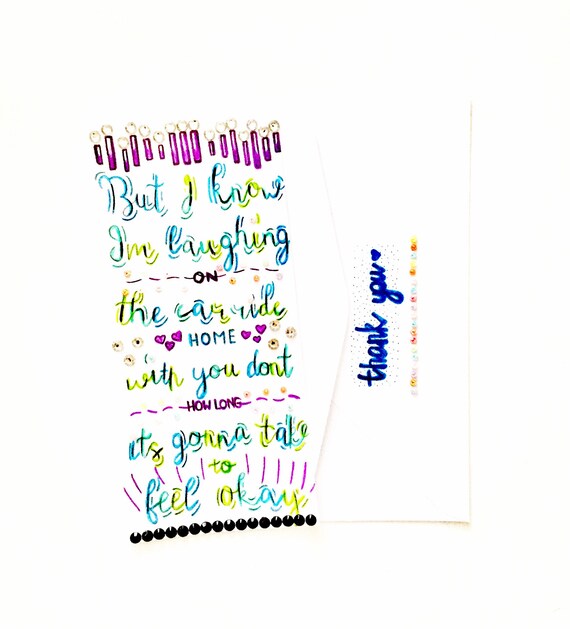 But I know
I'm laughing
ON
the car ride
HOME
with you don't
HOW LONG
its gonna take
to
feel okay
thank you